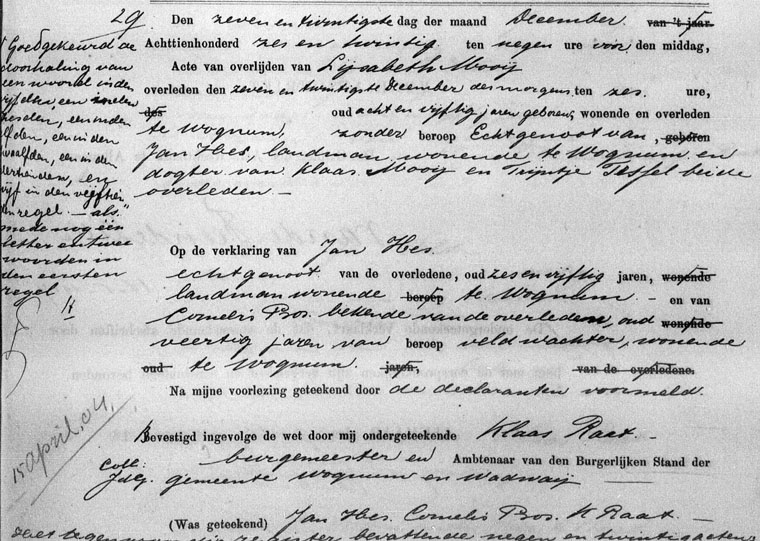 29. Den zeven en twintigste dag der maand December van 't jaar
Achttienhonderd zes en twintig ten negen ure voor den middag,
Acte van overlijden van Lijsabeth Mooij
overleden den zeven en twintigste December des morgens ten zes ure,
des oud acht en vijftig jaren geboren, wonende en overleden
te Wognum, zonder beroep Echtgenoot van, geboren
Jan Hes, landman, wonende te Wognum en
dogter van Klaas Mooij en Trijntje Tessel beide
overleden. —
Goedgekeurd de
doorhaling van
een woord in den
vijfden, een
zesden, een in den
elfden, een in den
twaalfden, een in den
derhienden, en
vijf in den veertien
en regel. — als
mede nog één
letter en twee
woorden in
den eersten
regel
Op de verklaring van Jan Hes.
echtgenoot van de overledene, oud zes en vijftig jaren, wonende
landman wonende beroep te Wognum — en van
Cornelis Bos. bekende van de overledene, oud wonende
veertig jaren van beroep veldwachter, wonende
oud te Wognum jaren, van de overledene.
Na mijne voorlezing geteekend door de declaranten voormeld.
15 april. 04.
Bevestigd ingevolge de wet door mij ondergeteekende Klaas Raat —
Coll: burgemeester en Ambtenaar van den Burgerlijken Stand der
gemeente Wognum en Wadwaij
(Was geteekend) Jan Hes. Cornelis Bos. K Raat. —
register bevattende negen en twintig acten